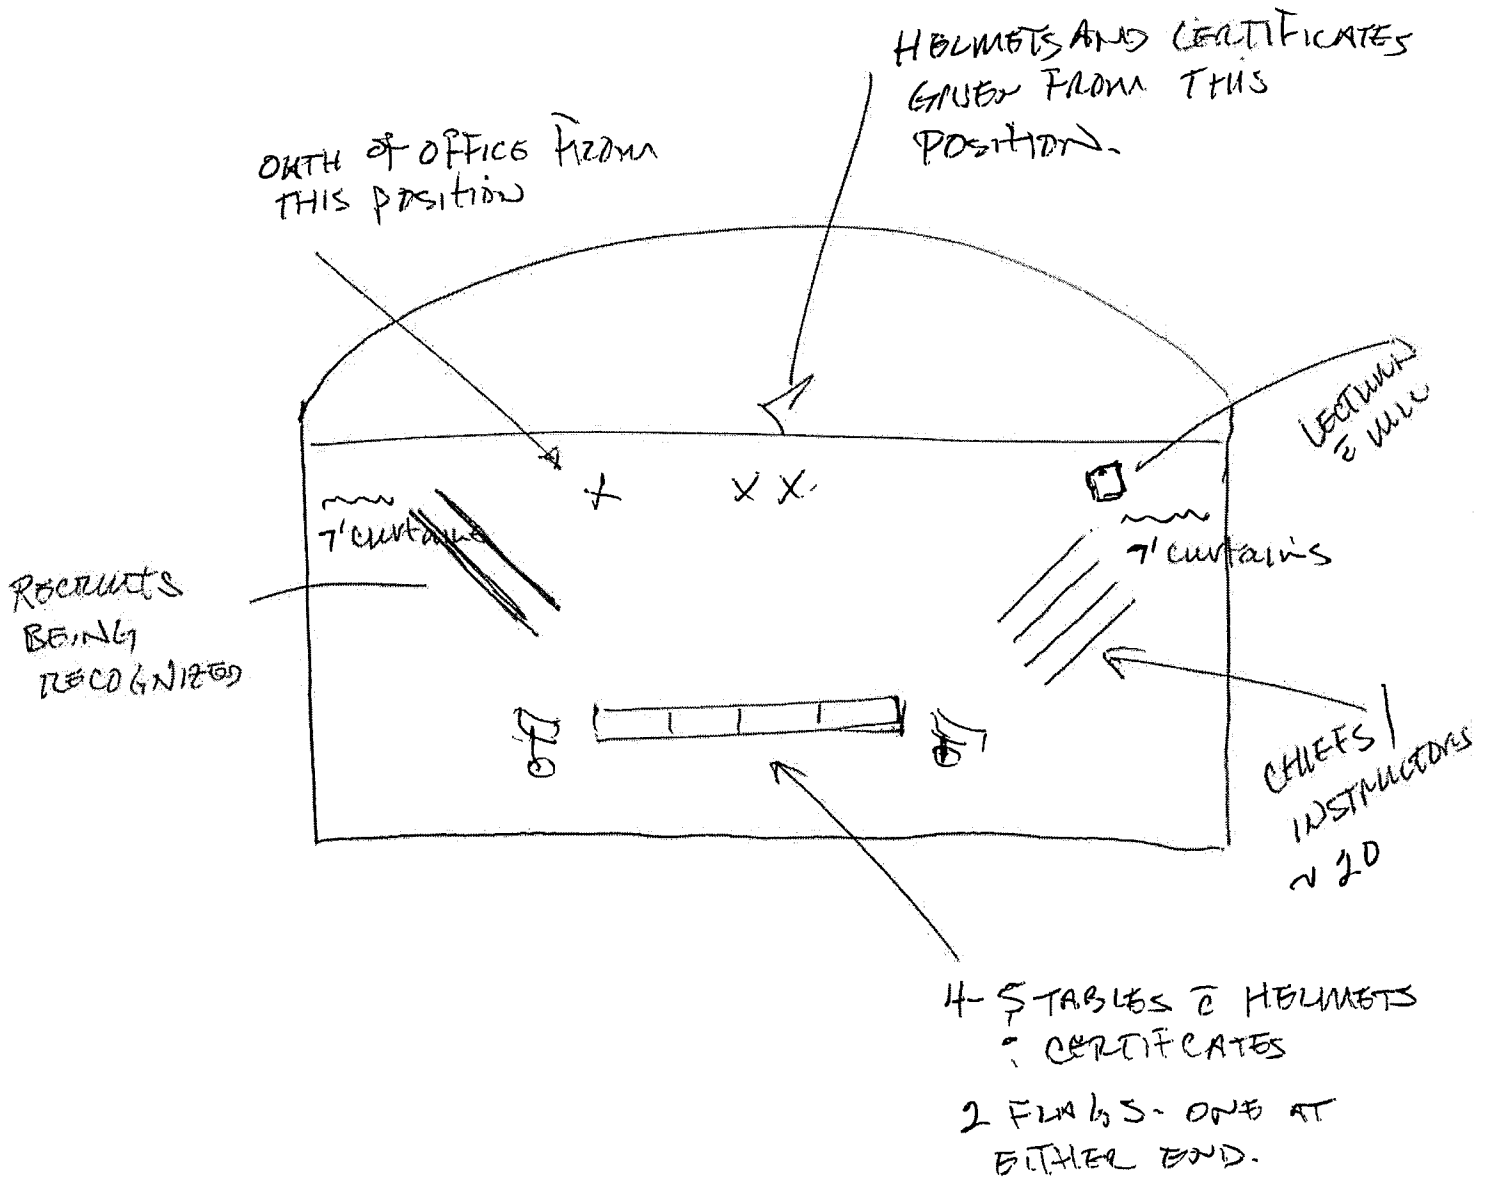 HELMETS AND CERTIFICATES
GIVEN FROM THIS
POSITION.
OATH OF OFFICE FROM
THIS POSITION
LECTURN
c̄ MIC
7' curtains
7' curtains
RECRUITS
BEING
RECOGNIZED
CHIEFS /
INSTRUCTORS
~ 20
4-5 TABLES c̄ HELMETS
& CERTIFCATES
2 FLAGS - ONE AT
EITHER END.